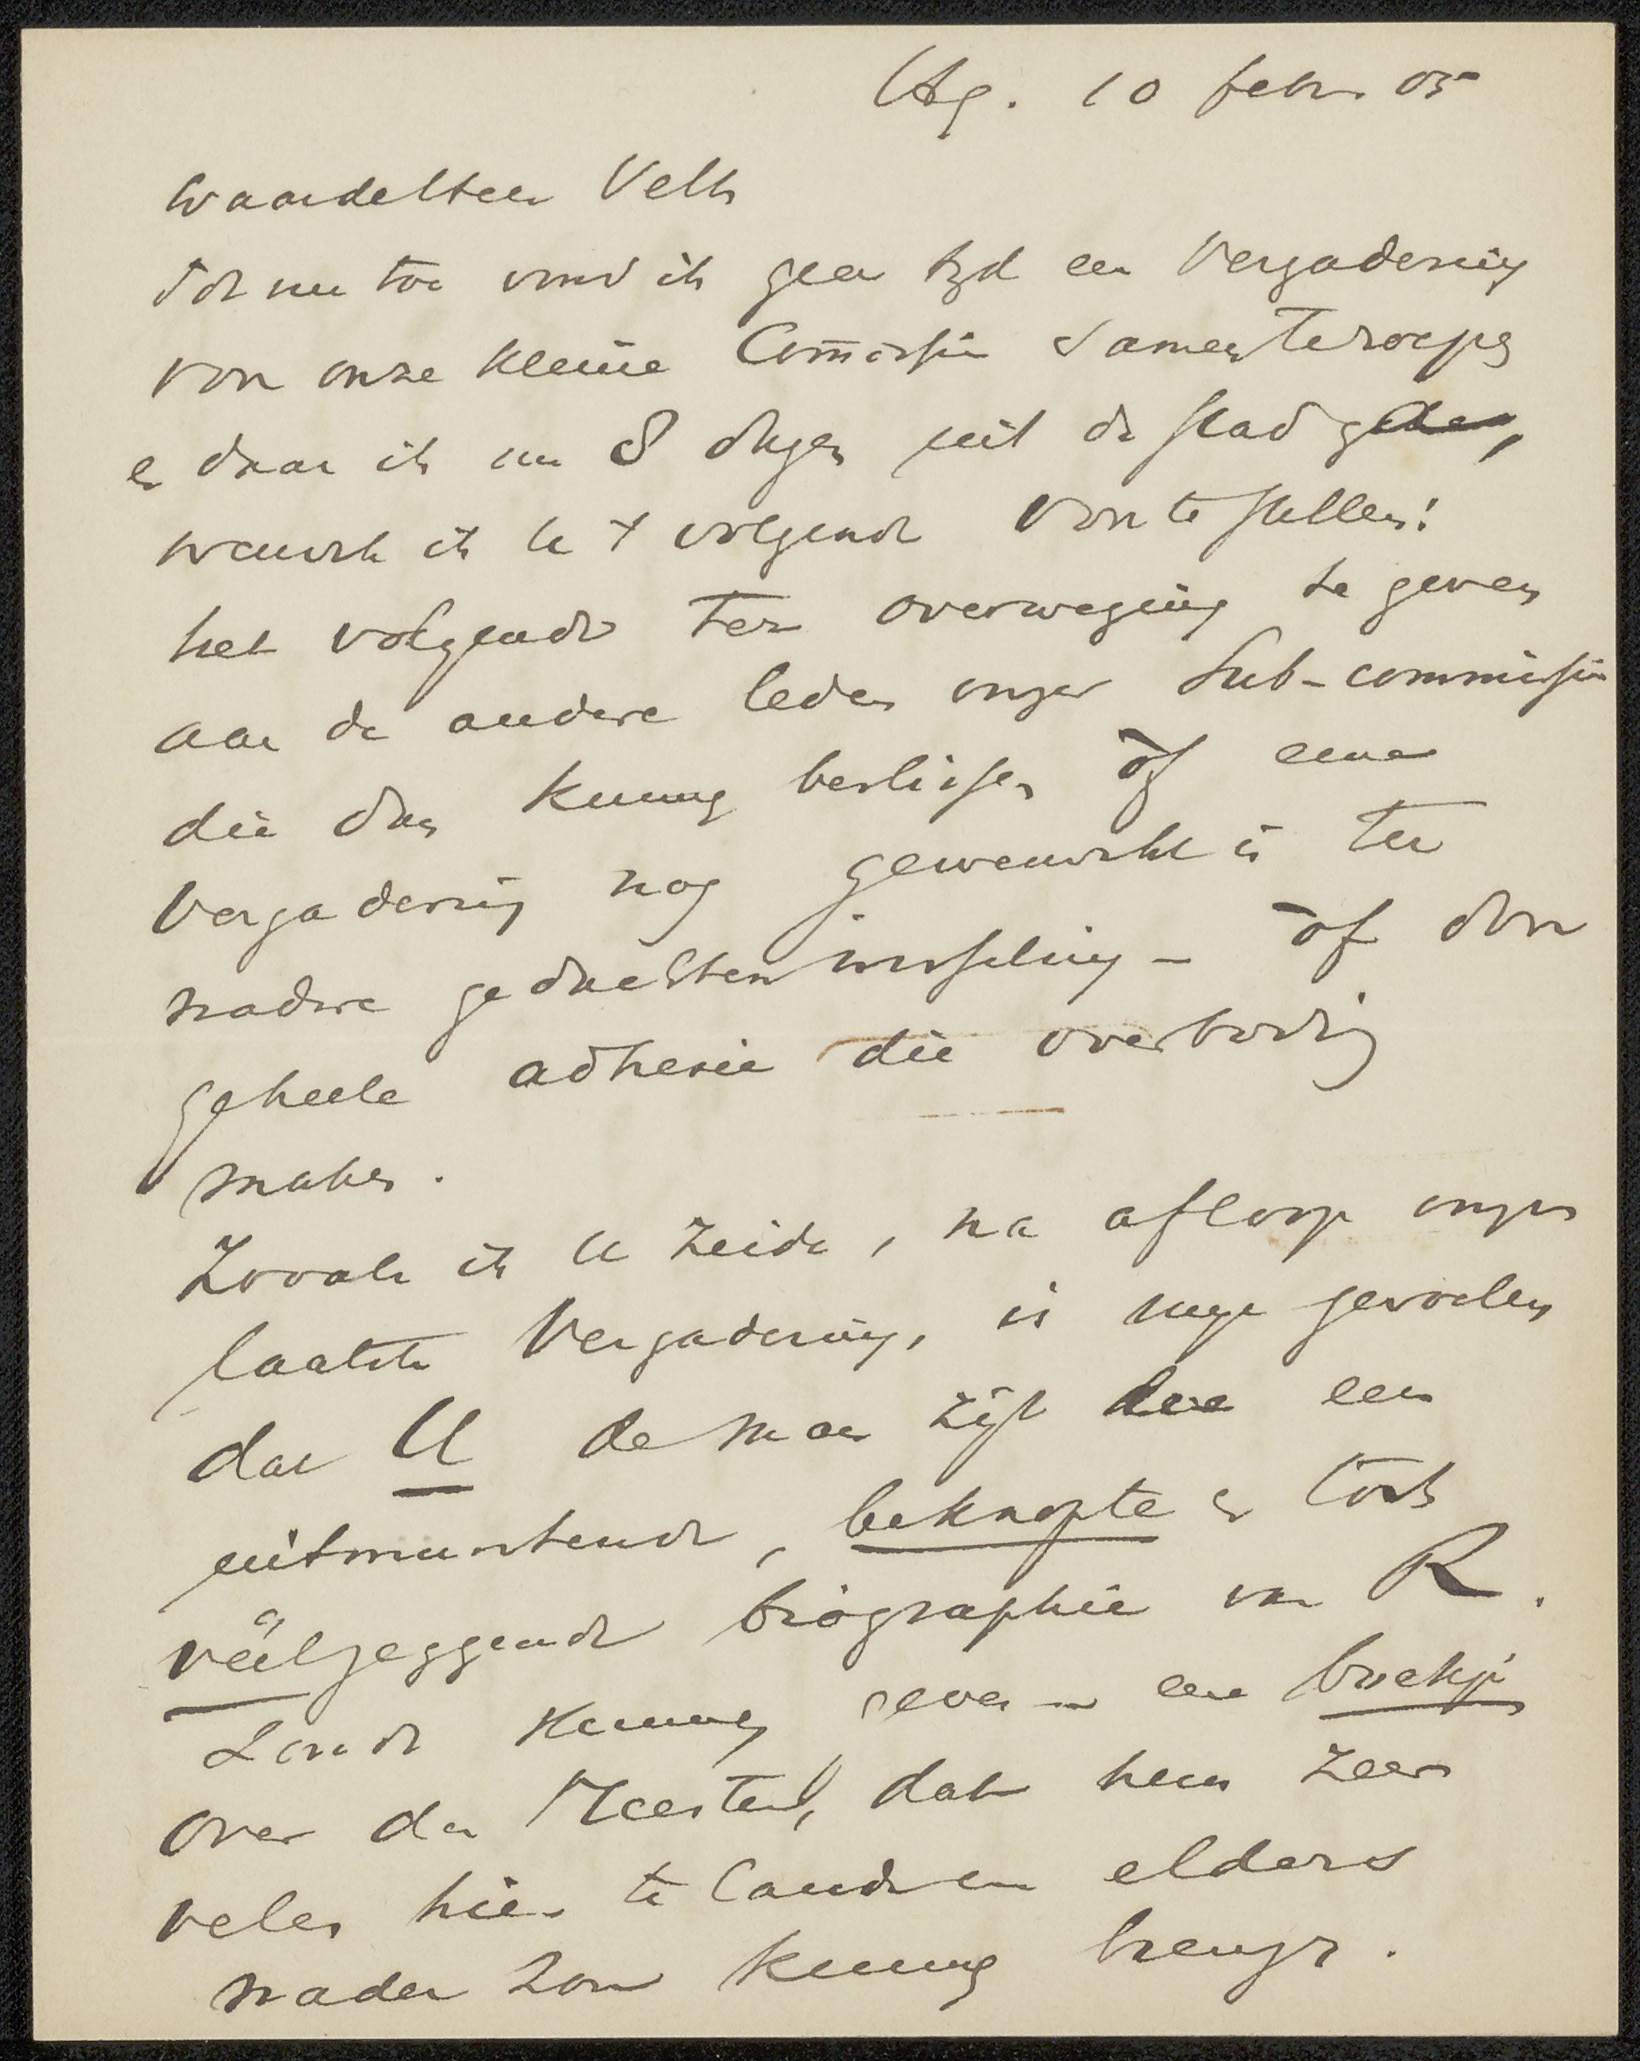 10 febr. 05
Waarde Heer Veth
Tot nu toe vond ik geen tyd een Vergadering
van onze kleine Comissie samenteroepen
en daar ik nu 8 dagen uit de stad ga,
wensch ik U 't volgende voor te stellen:
het volgende ter overweging te geven
aan de andere leden onzer Sub-commissie
die dan kunnen beslissen óf eene
Vergadering nog gewenscht is ter
nadere gedachtenwisseling - óf door
geheele adhesie die overbodig
maken.
Zooals ik U zeide, na afloop onzer
laatste Vergadering, is myn gevoelen
dat U de man zijt die een
uitmuntende, beknopte en toch
véélzeggende biographie van R.
zoude kunnen geven - een boekje
over den Meester, dat hem zeer
velen hier te lande en elders
nader zou kunnen brengen.